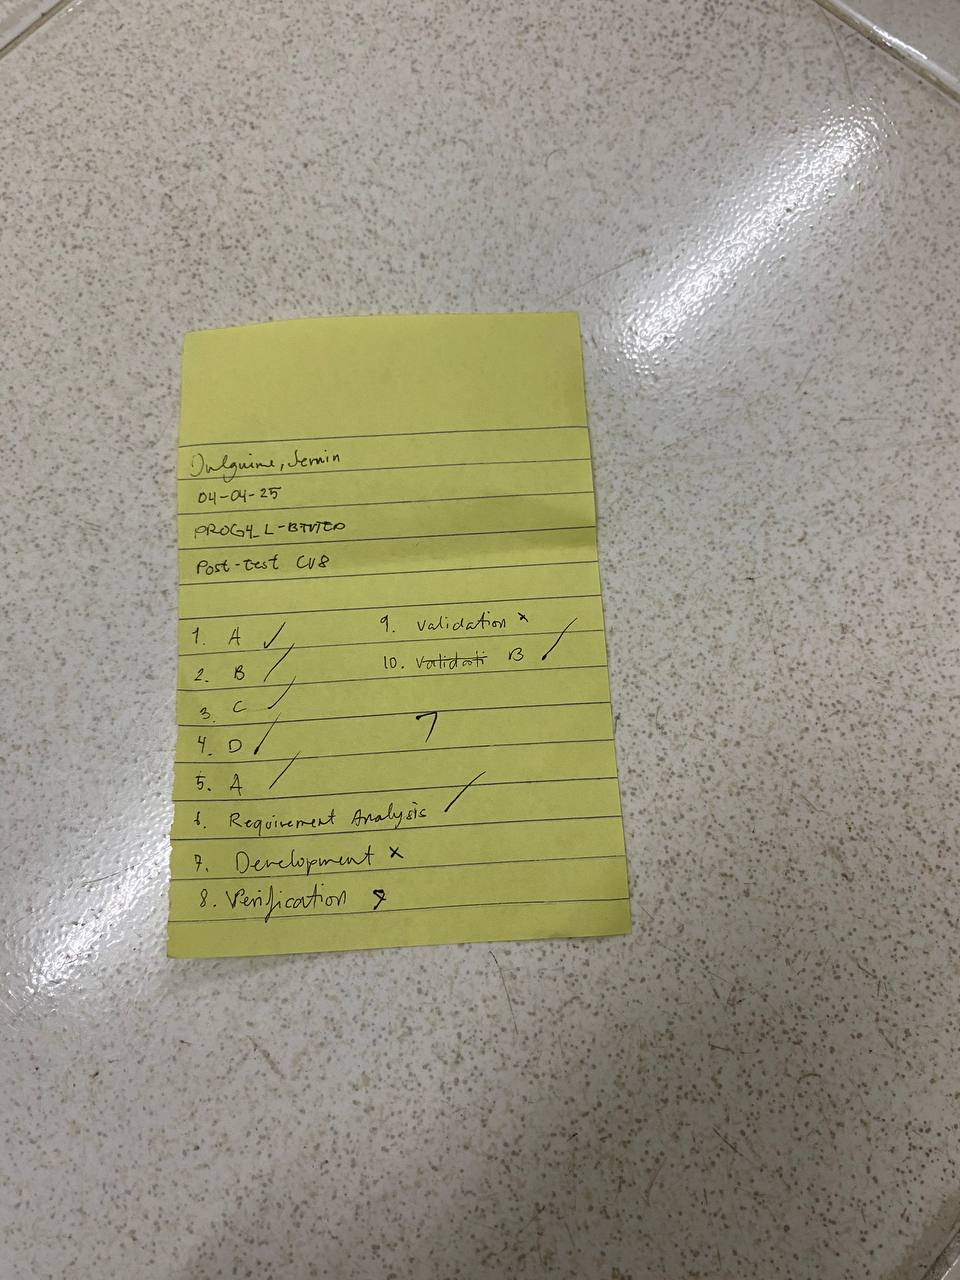 Dulguime, Jemin
04-04-25
PROG4_L-BTVTED
Post-test CU8
1. A ✓
2. B /
3. C /
4. D /
5. A /
6. Requirement Analysis /
7. Development x
8. Verification x
9. validation x
10. validati B /
7